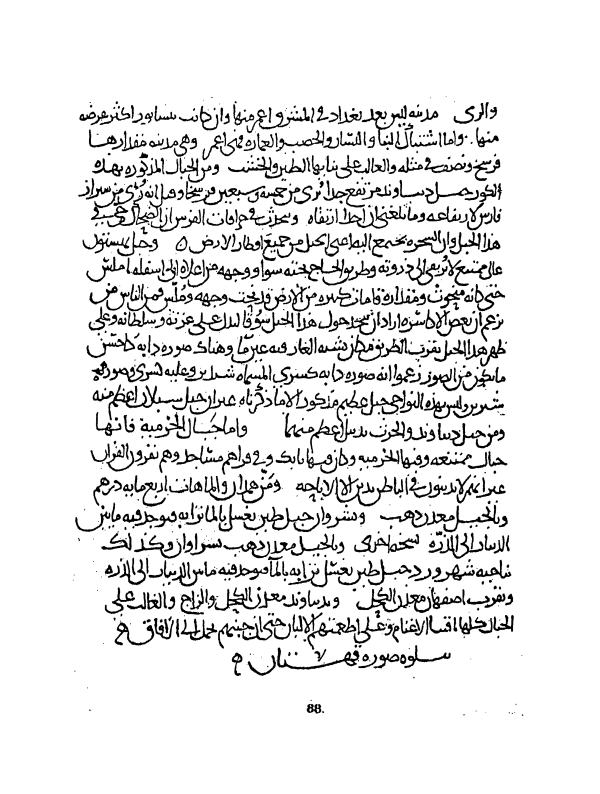 والرى مدينه ليس بعد بغداد فى المشرق اعمر منها وان كانت نيسابور اكثر عرصه
منها. واما اشتباك البنا واليسار والخصب والعماره فهى اعمر وهى مدينه مقدارها
فرسخ ونصف فى مثله والغالب على بنايها الطين والخشب ومن الجبال المذكوره بهذه
الكور جبل دنباوند من تقع جدا يرى من خمسه وسبعين فرسخا
فارس لارتفاعه وما بلغنى ان احدا ارتقاه وتحدث فى خرافات الفرس ان الضحاك حى فى
هذا الجبل وان السحره تجتمع اليه على الجبل من جميع اقطار الارض ٥ وجبل بيستون
عال ممتنع لا يرتقى الى ذروته وطريق الحاج تحته سوا ووجهه من اعلاه الى اسفله املس
حتى كانه منحوت ومقداره قامات كثيره من الارض قد نحت وجهه وملس فمن الناس من
يزعم ان بعض الاكاسره اراد ان يتخذ حول هذا الجبل سوقا ليدل على عزته وسلطانه وعلى
ظهر هذا الجبل بقرب الطريق مكان يشبه الغار وفيه عين ما وهناك صوره دابه كاحسن
ما يكون من الصور زعموا انه صوره دابه كسرى المسماه شبديز وعليه كسرى وصوره
شيرين وليس بهذه النواحى جبل عظيم مذكور الا ما ذكرناه غير ان جبل سبلان اعظم منه
ومن جبل دنباوند والحرث بدبيل اعظم منهما واما جبال الخرميه فانها
جبال ممتنعه وفيها الخرميه وكان فيها بابك وفى قراهم مساجد وهم يقرون القران
غير انهم لا يدينون فى الباطن بدين الا الاباحه ومن همدان والماهات اربعمايه درهم
وبالجبل معدن ذهب وبشروان جبل طين يغسل بالما ترابه فيوجد فيه ما بين
الدينار الى الذره نسخه اخرى وبالجبل معدن ذهب بشراوان وكذلك
ناحيه شهرورد جبل طين يغسل ترابه بالما فيوجد فيه ما بين الدينار الى الذره
وبقرب اصفهان معدن الكحل وبدنباوند معدن الكحل والزاج والغالب على
الجبال كلها اقتنا الاغنام وعلى اطعمتهم الالبان حتى ان جبنهم يحمل الى الافاق
يتلوه صوره قهستان
88.